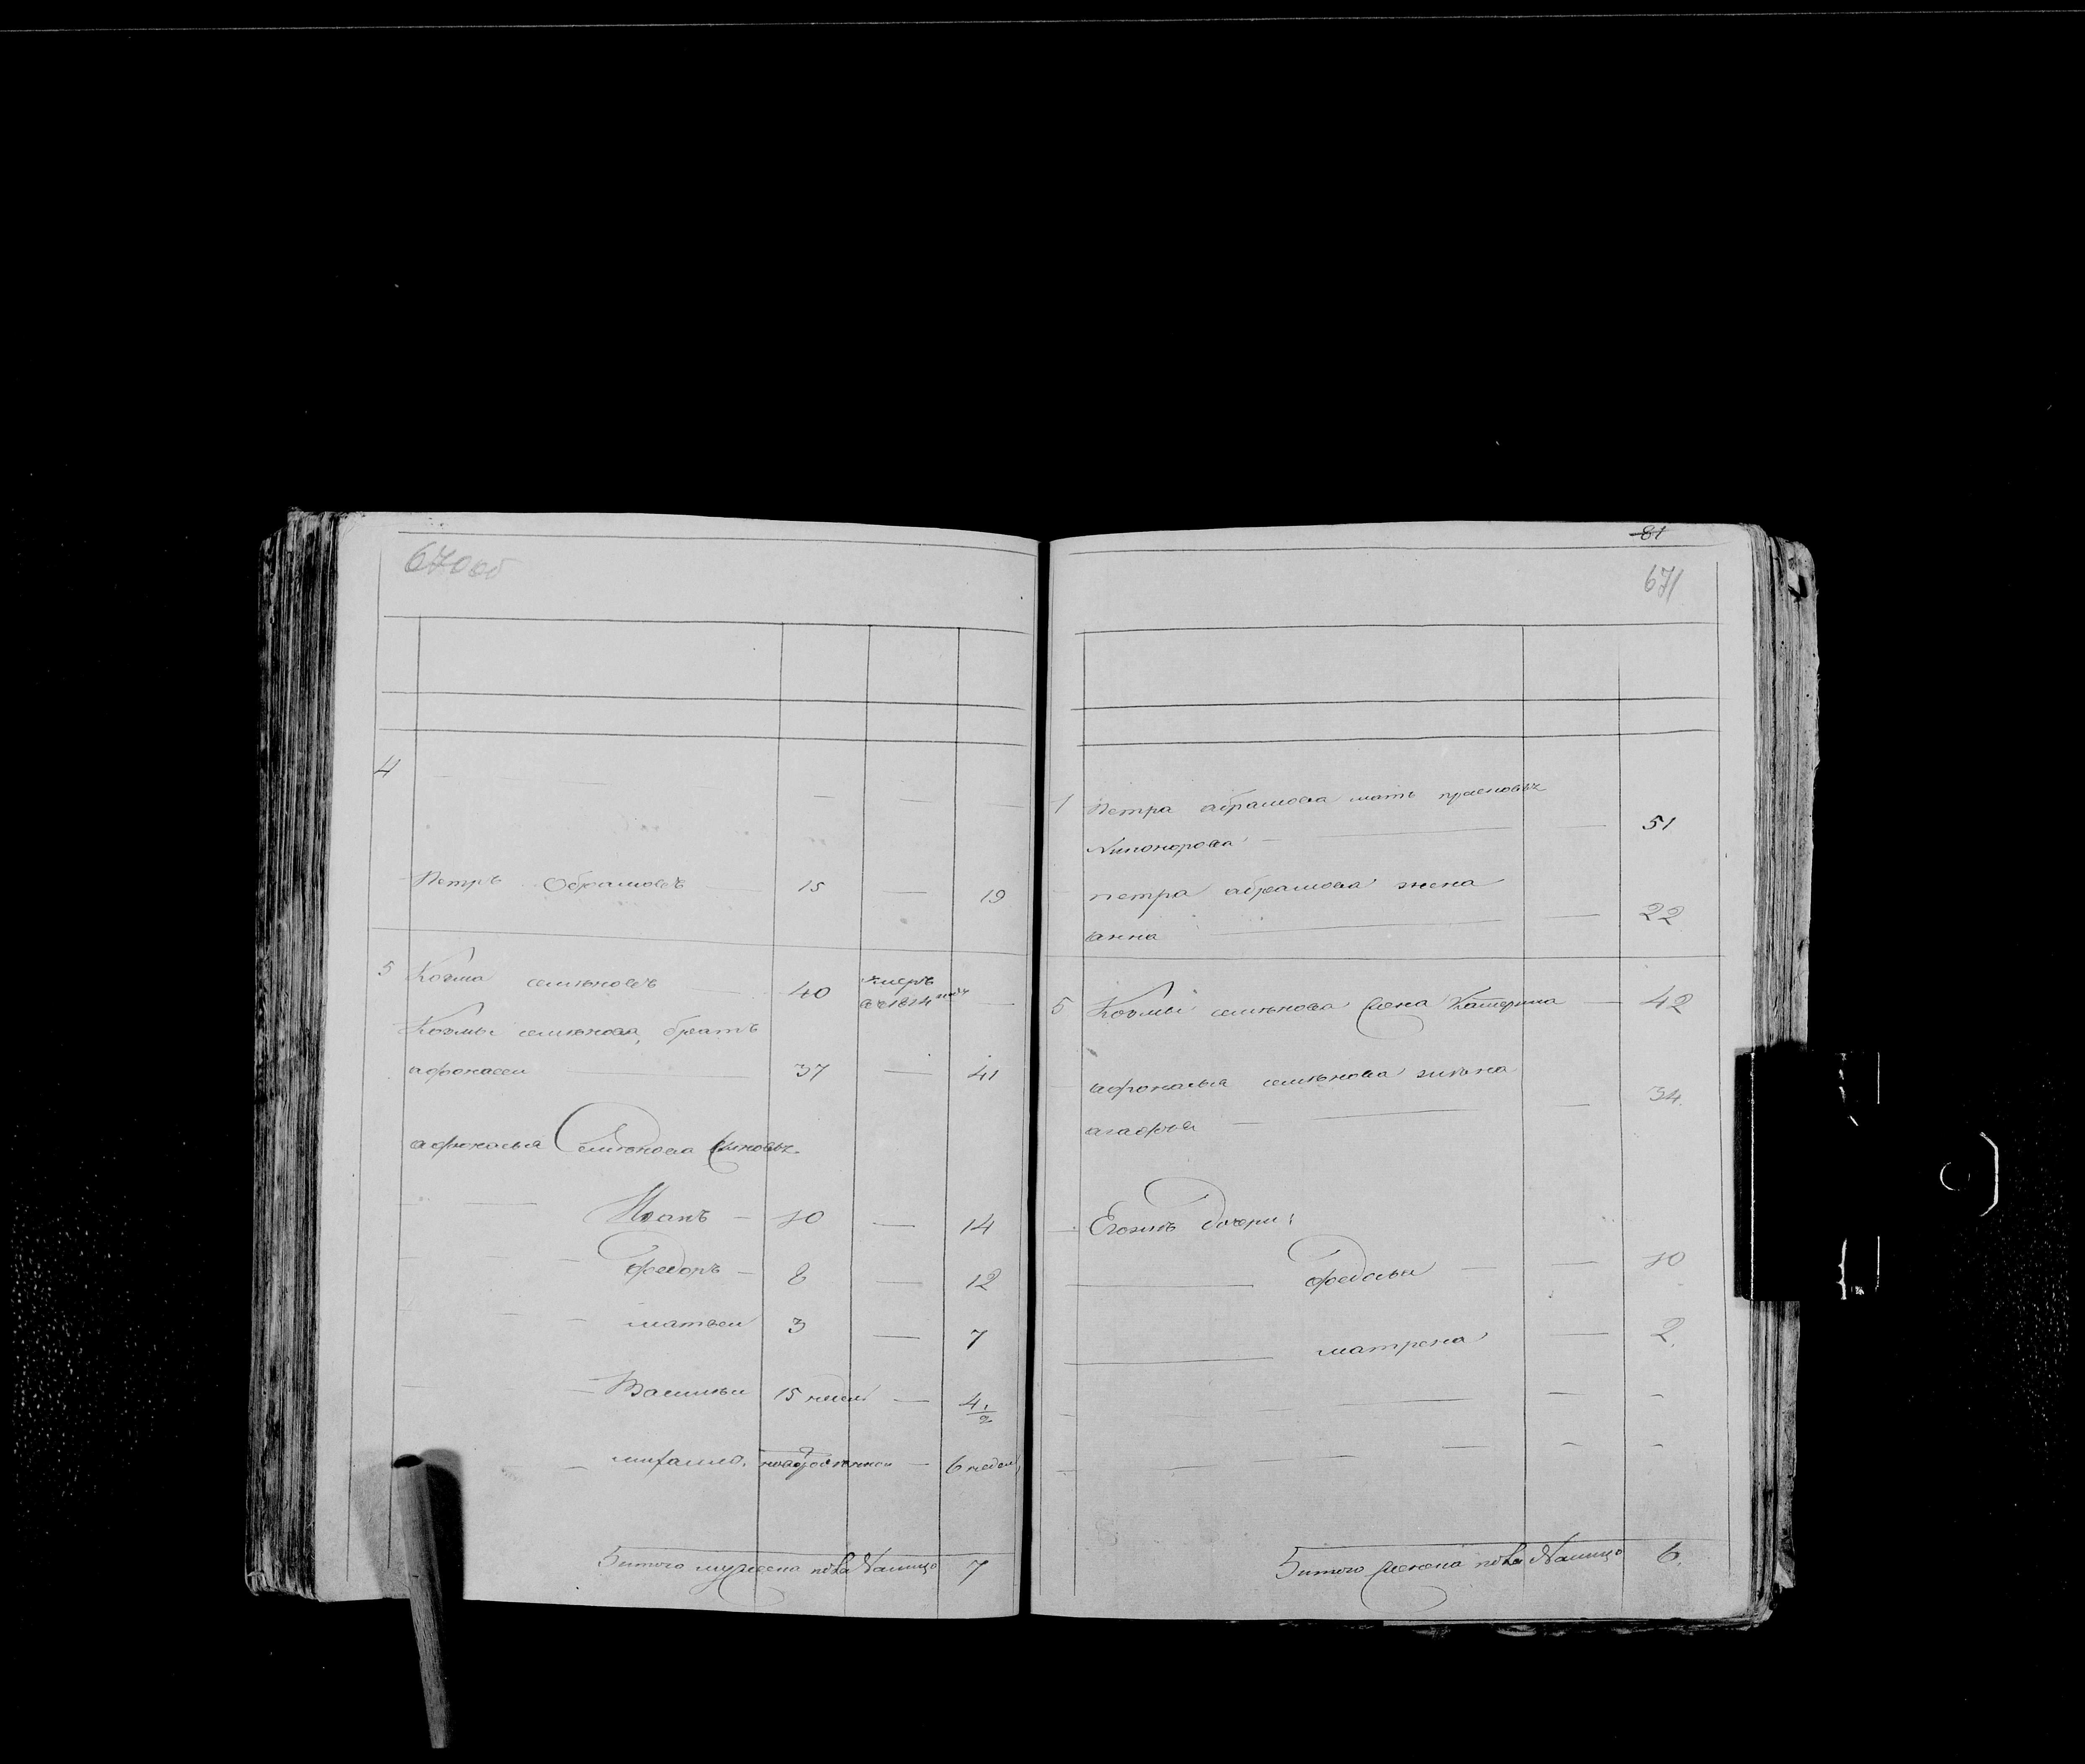 670 об
4
Петръ Обрамовъ 15 — 19
5 Козма семѣновъ — 40 умеръ
въ 1814 —
Козмы семѣнова, братъ
афонасеи 37 — 41
афонасья Семѣнова Сыновья
Иванъ — 10 — 14
Федоръ — 8 — 12
матвеи 3 — 7
Василеи 15 недел — 4 1/2
михаило, новорожденнои — 6 недел
5 итого мужеска пола На лицо 7
81
671
1 Петра абрамова мать
Никонорова — 51
петра абрамова жена
анна — 22
5 Козмы семѣнова Жена Катерина — 42
афонасья семѣнова жена
агафья — 34.
Егожъ дочери:
Федосья — 10
матрена — 2.
5 итого женска пола На лицо 6.